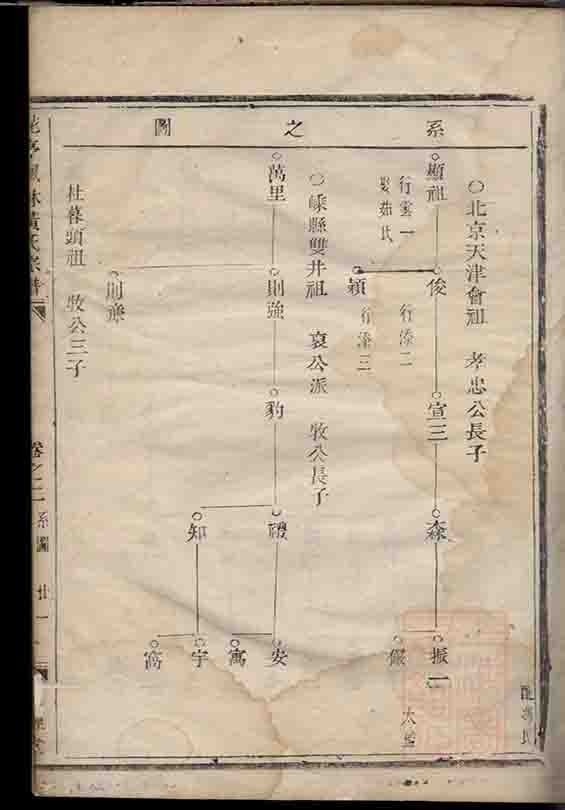 系之圖
北京天津會祖 孝忠公長子
顯祖
行雲一
俊
行添二
穎
行添三
宣三
森
振一
儼
嵊縣雙井祖 哀公派 牧公長子
萬里
則強
豹
禮
知
安
寓
宇
窩
則齊
杜葭頭祖 牧公三子
黃氏宗譜
卷之二
系圖
廿一